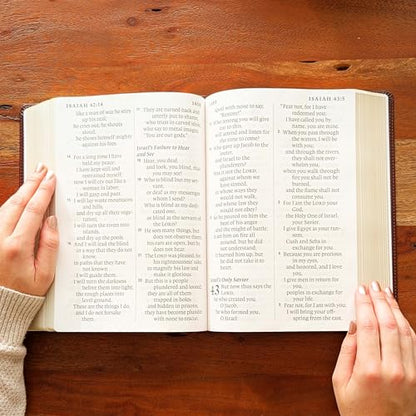 ISAIAH 42:14
like a man of war he stirs
up his zeal;
he cries out, he shouts
aloud,
he shows himself mighty
against his foes.
14 For a long time I have
held my peace;
I have kept still and
restrained myself;
now I will cry out like a
woman in labor;
I will gasp and pant.
15 I will lay waste mountains
and hills,
and dry up all their vege-
tation;
I will turn the rivers into
islands,
and dry up the pools.
16 And I will lead the blind
in a way that they do not
know,
in paths that they have
not known
I will guide them.
I will turn the darkness
before them into light,
the rough places into
level ground.
These are the things I do,
and I do not forsake
them.
17 They are turned back and
utterly put to shame,
who trust in carved idols,
who say to metal images,
"You are our gods."
Israel's Failure to Hear
and See
18 Hear, you deaf,
and look, you blind, that
you may see!
19 Who is blind but my ser-
vant,
or deaf as my messenger
whom I send?
Who is blind as my dedi-
cated one,
or blind as the servant of
the LORD?
20 He sees many things, but
does not observe them;
his ears are open, but he
does not hear.
21 The LORD was pleased, for
his righteousness' sake,
to magnify his law and
make it glorious.
22 But this is a people
plundered and looted;
they are all of them
trapped in holes
and hidden in prisons;
they have become plunder
with none to rescue,
spoil with none to say,
"Restore!"
23 Who among you will give
ear to this,
will attend and listen for
the time to come?
24 Who gave up Jacob to the
looter,
and Israel to the
plunderers?
Was it not the LORD,
against whom we
have sinned,
in whose ways they
would not walk,
and whose law they
would not obey?
25 So he poured on him the
heat of his anger
and the might of battle;
it set him on fire all
around, but he did
not understand;
it burned him up, but
he did not take it to
heart.
Israel's Only Savior
43 But now thus says the
LORD,
he who created you,
O Jacob,
he who formed you,
O Israel:
ISAIAH 43:5
"Fear not, for I have
redeemed you;
I have called you by
name, you are mine.
2 When you pass through
the waters, I will be
with you;
and through the rivers,
they shall not over-
whelm you;
when you walk through
fire you shall not be
burned,
and the flame shall not
consume you.
3 For I am the LORD your
God,
the Holy One of Israel,
your Savior.
I give Egypt as your ran-
som,
Cush and Seba in
exchange for you.
4 Because you are precious
in my eyes,
and honored, and I love
you,
I give men in return for
you,
peoples in exchange for
your life.
5 Fear not, for I am with you;
I will bring your off-
spring from the east,